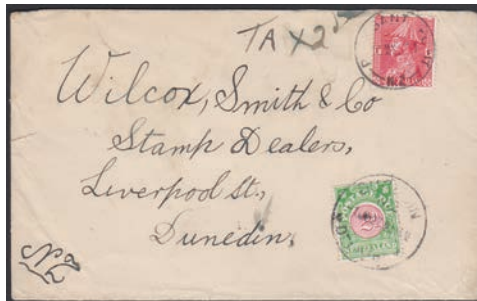 TAX 2d
Wilcox, Smith & Co
Stamp Dealers,
Liverpool St.,
Dunedin.
NZ